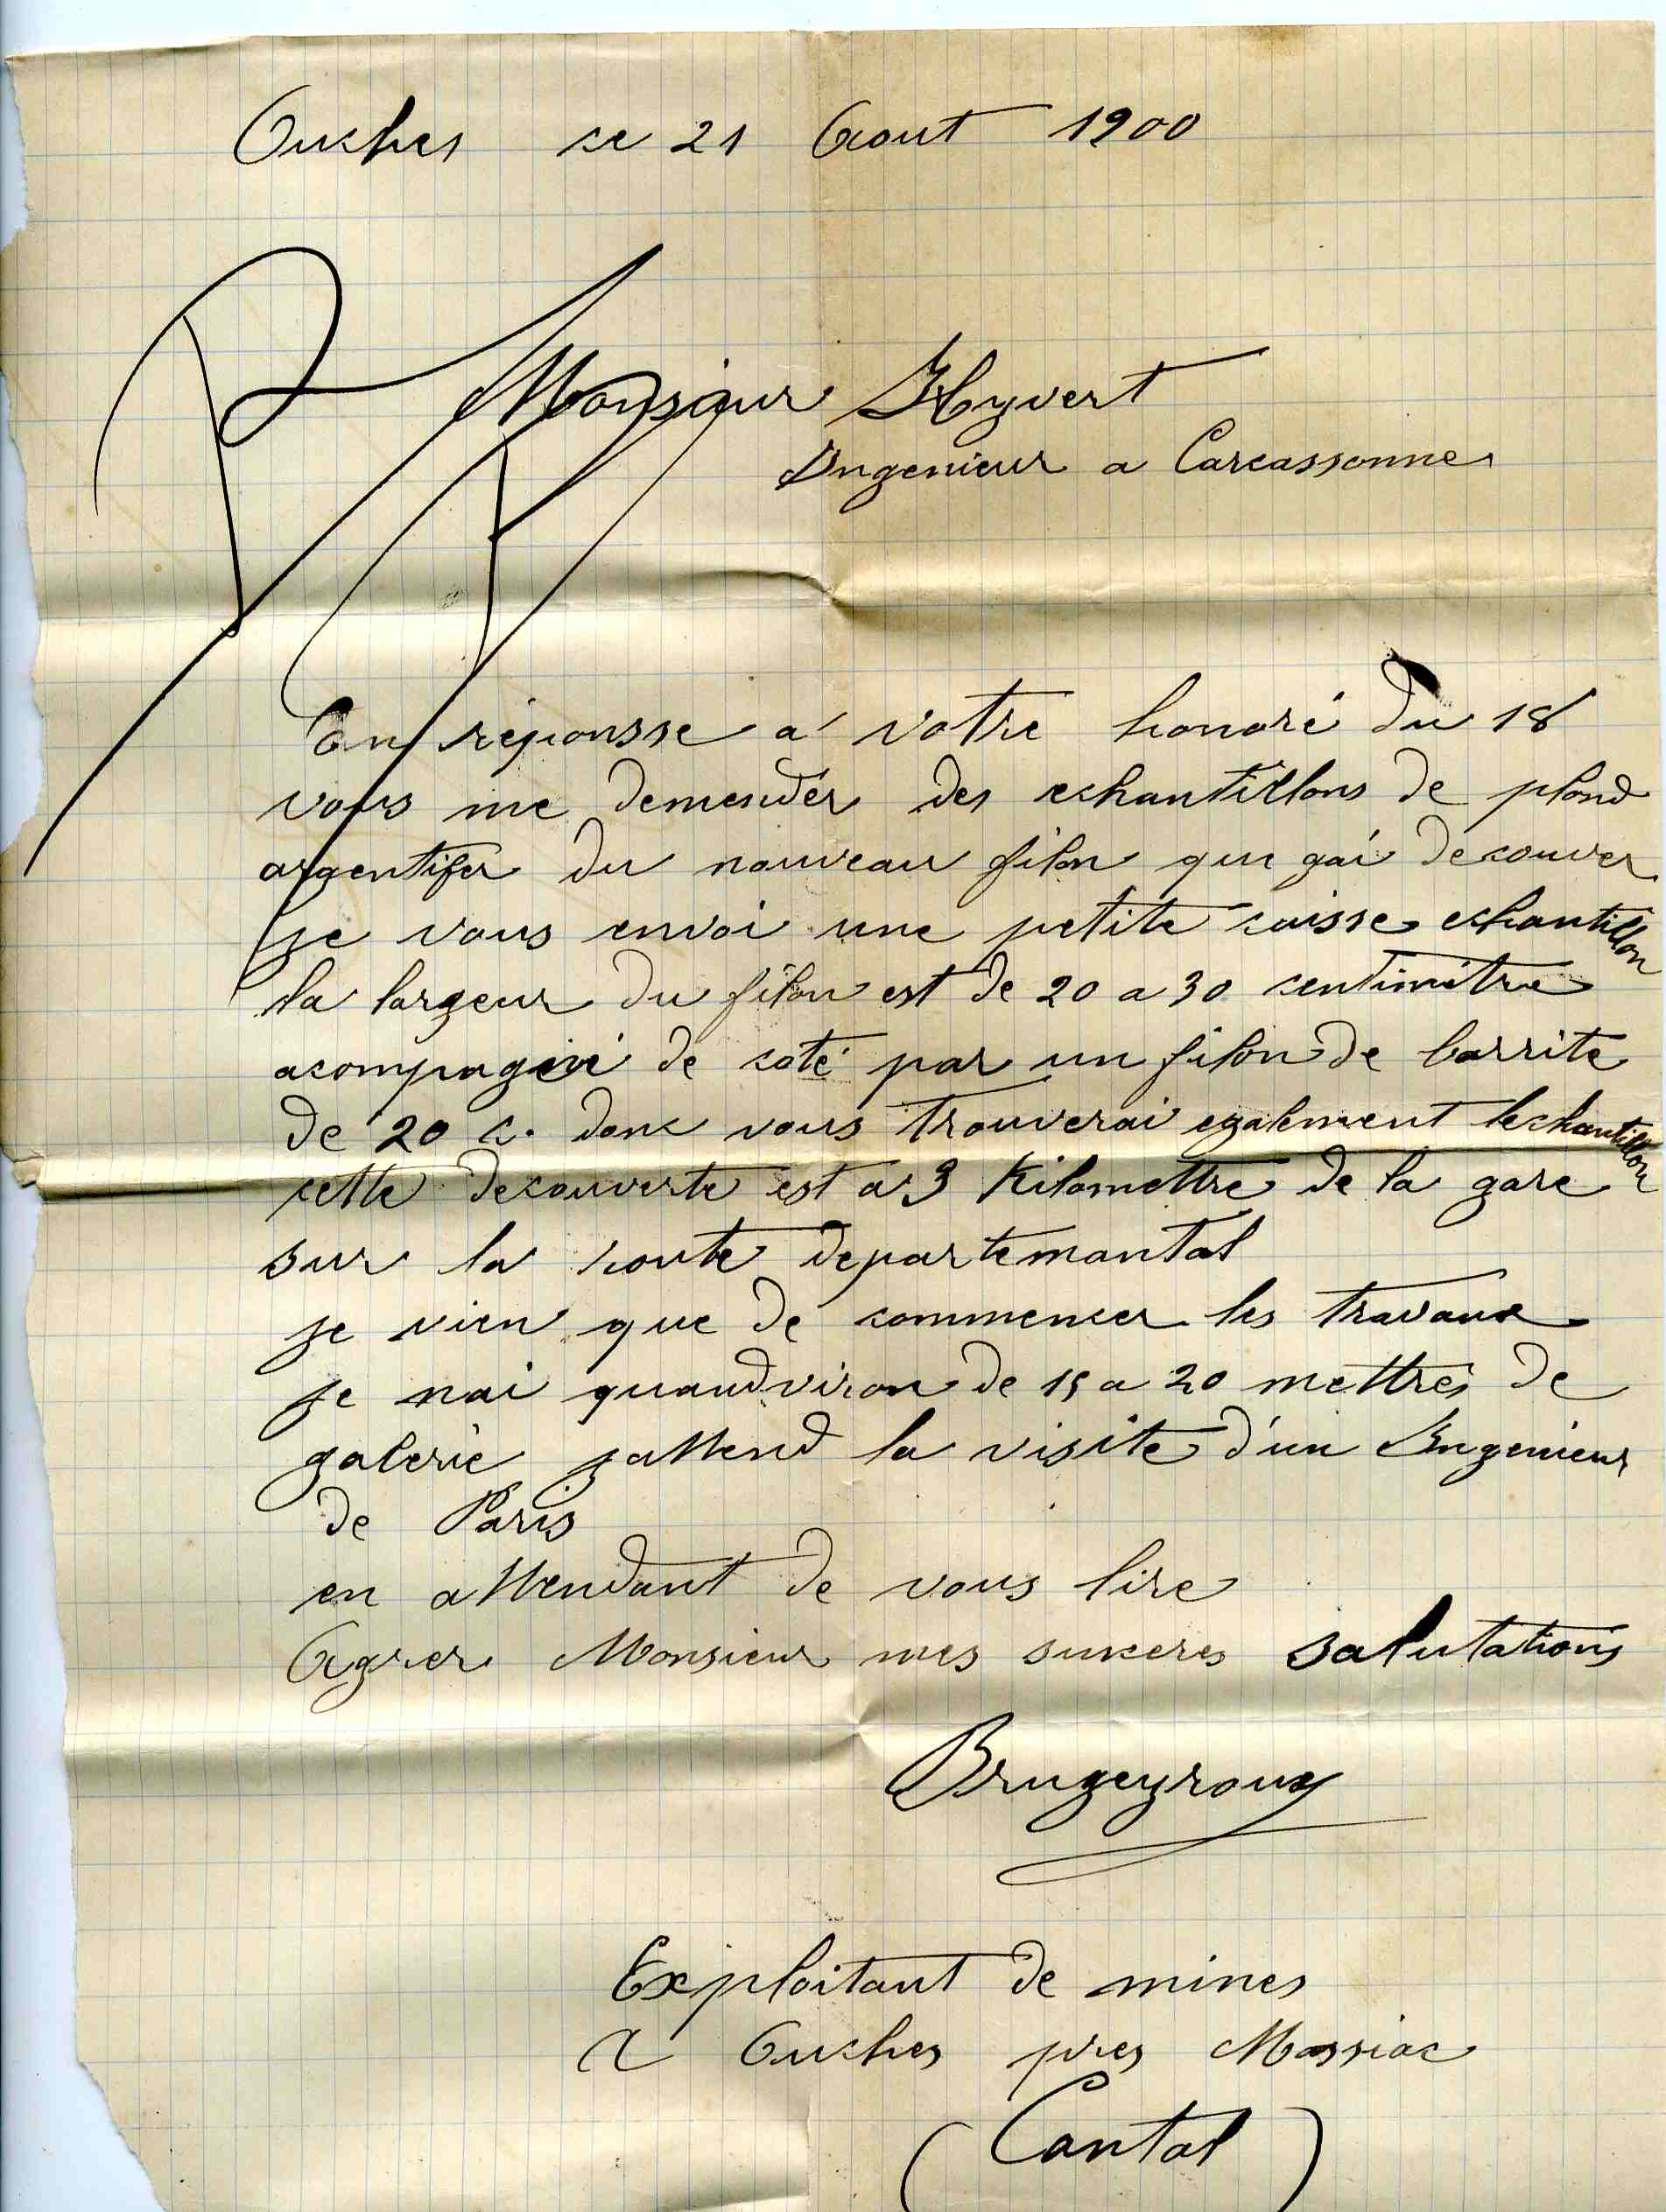 Ouches ce 21 Aout 1900
Monsieur Hyvert
Ingenieur a Carcassonne
En réponsse a votre honoré du 18
vous me demender des echantillons de plond
argentifer du nouveau filon que gai decouver
je vous envoi une petite caisse echantillon
la largeur du filon est de 20 a 30 centimétre
acompagné de coté par un filon de barrite
de 20 c. donc vous trouverai egalement lechantillon
cette decouverte est a 3 Kilomettre de la gare
sur la route departemantal
je vien que de commencer les travaux
je nai quandviron de 15 a 20 mettres de
galerie jattend la visite d'un Ingenieur
de Paris
en attendant de vous lire
Agrer Monsieur mes sinceres salutations
Brugeyroux
Exploitant de mines
A Ouches pres Massiac
(Cantal)